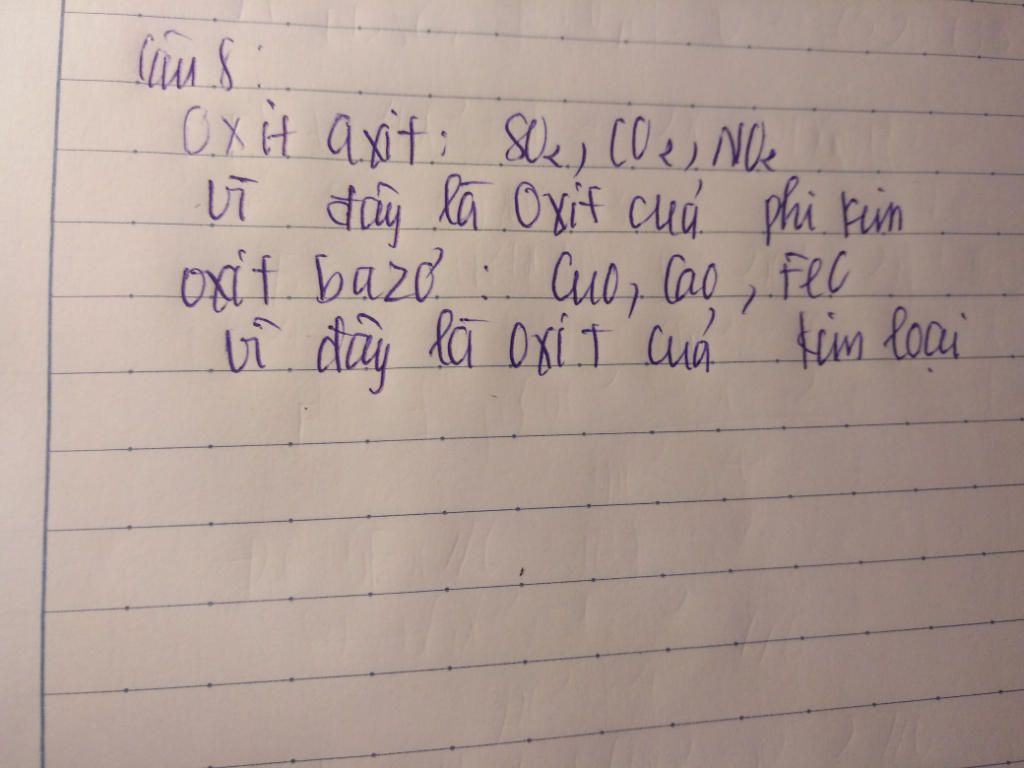 Câu 8:
Oxit axit: SO₂, CO₂, NO₂
Vì đây là Oxit của phi kim
oxit bazơ: CuO, CaO, FeC
Vì đây là oxit của kim loại